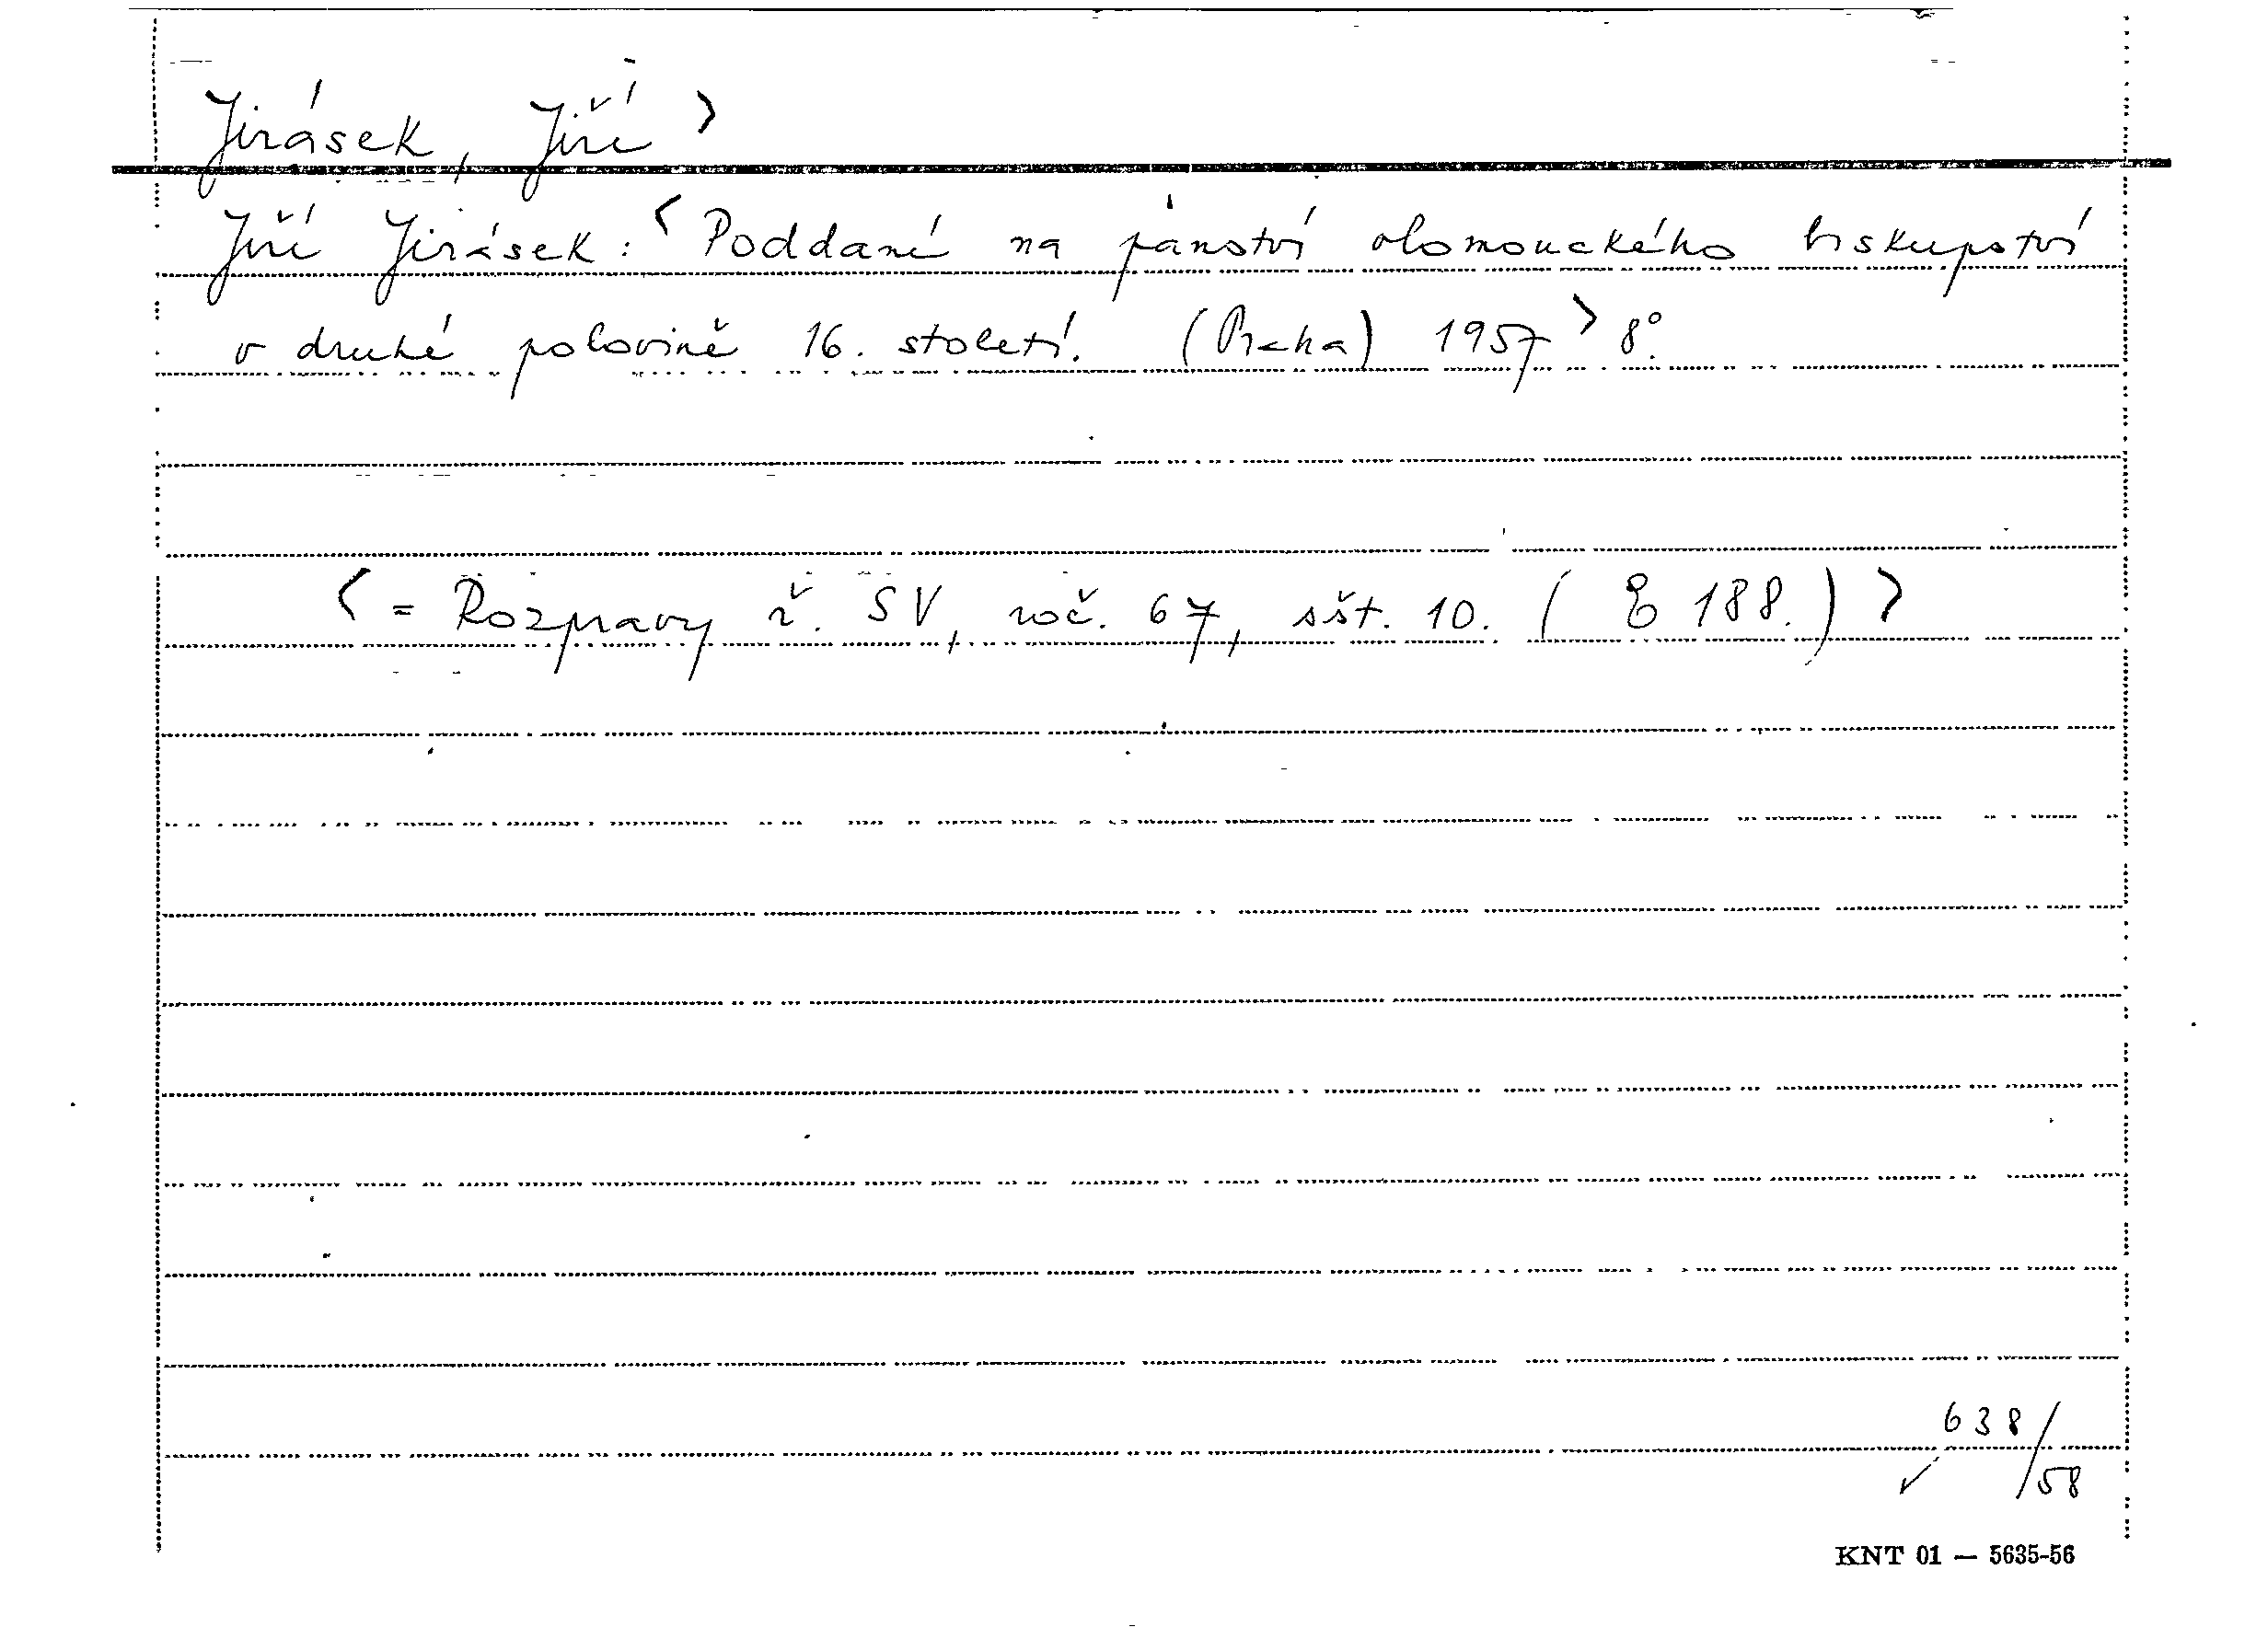 Jirásek, Jiří >
Jiří Jirásek: < Poddaní na panství olomouckého biskupství
v druhé polovině 16. století. (Praha) 1957 > 8°.
< = Rozpravy ř. SV, roč. 67, sšt. 10. ( E 188. ) >
638/
✓ /58
KNT 01 — 5635-56